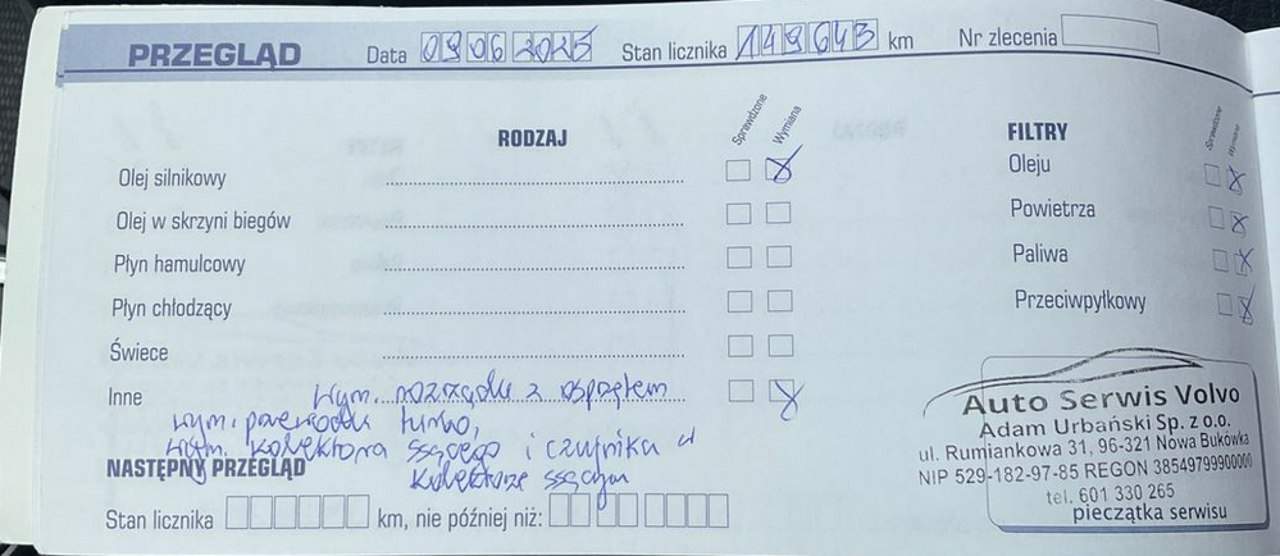 PRZEGLĄD Data 09 06 2025 Stan licznika 149643 km Nr zlecenia
RODZAJ Sprawdzone Wymiana FILTRY Sprawdzone Wymiana
Olej silnikowy Oleju
Olej w skrzyni biegów Powietrza
Płyn hamulcowy Paliwa
Płyn chłodzący Przeciwpyłkowy
Świece
Inne Wym. rozrządu z osprzętem
wym. przewodu turbo,
wym. kolektora ssącego i czujnika w
kolektorze ssącym
NASTĘPNY PRZEGLĄD
Stan licznika km, nie później niż:
Auto Serwis Volvo
Adam Urbański Sp. z o.o.
ul. Rumiankowa 31, 96-321 Nowa Bukówka
NIP 529-182-97-85 REGON 38549799900000
tel. 601 330 265
pieczątka serwisu